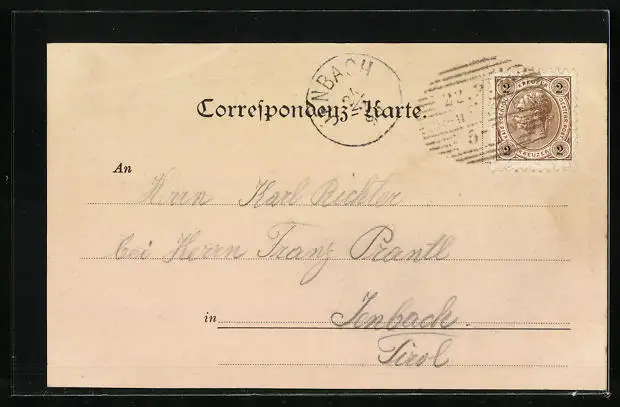 Correspondenz-Karte.
JENBACH
24
2 KREUZER 2
2 KREUZER 2
An Herrn Karl Richter
bei Herrn Franz Prantl
in Jenbach.
Tirol